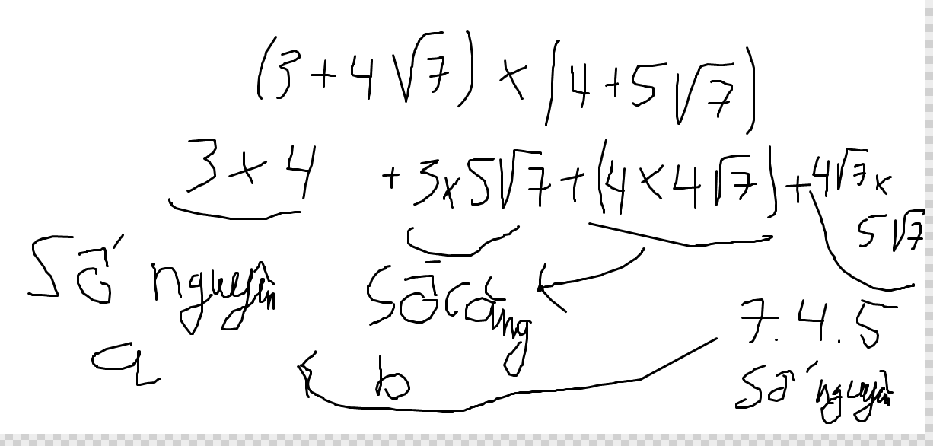 (3+4√7) × (4+5√7)
3×4 + 3×5√7 + (4×4√7) + 4√7 ×
5√7
Số nguyên Số căng 7.4.5
a b Số nguyên